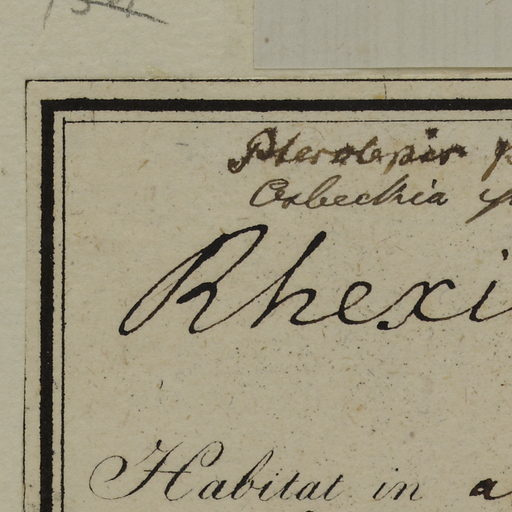 Pterolepis p
Osbeckia
Rhexi
Habitat in a